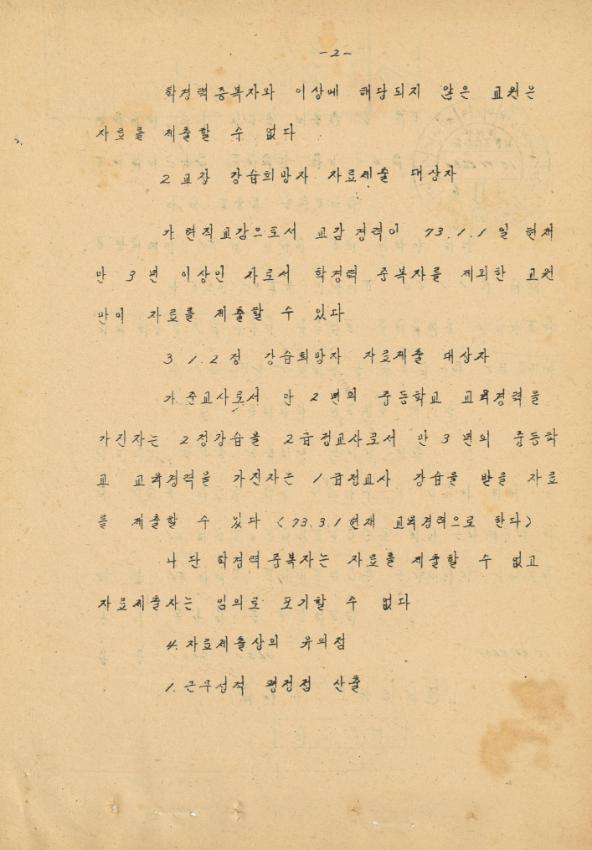 -2-
학경력중복자와 이상에 해당되지 않은 교원은
자료를 제출할 수 없다
2 교장 강습희망자 자료제출 대상자
가 현직교감으로서 교감경력이 73.1.1일 현재
만 3년 이상인 자로서 학경력 중복자를 제외한 교원
만이 자료를 제출할 수 있다
3 1.2정 강습희망자 자료제출 대상자
가 준교사로서 만 2년의 중등학교 교육경력을
가진자는 2정강습을 2급정교사로서 만 3년의 중등학
교 교육경력을 가진자는 1급정교사 강습을 받을 자료
를 제출할 수 있다 (73.3.1현재 교육경력으로 한다)
나 단 학경력중복자는 자료를 제출할 수 없고
자료제출자는 임의로 포기할 수 없다
4. 자료제출상의 유의점
1. 근무성적 평정점 산출